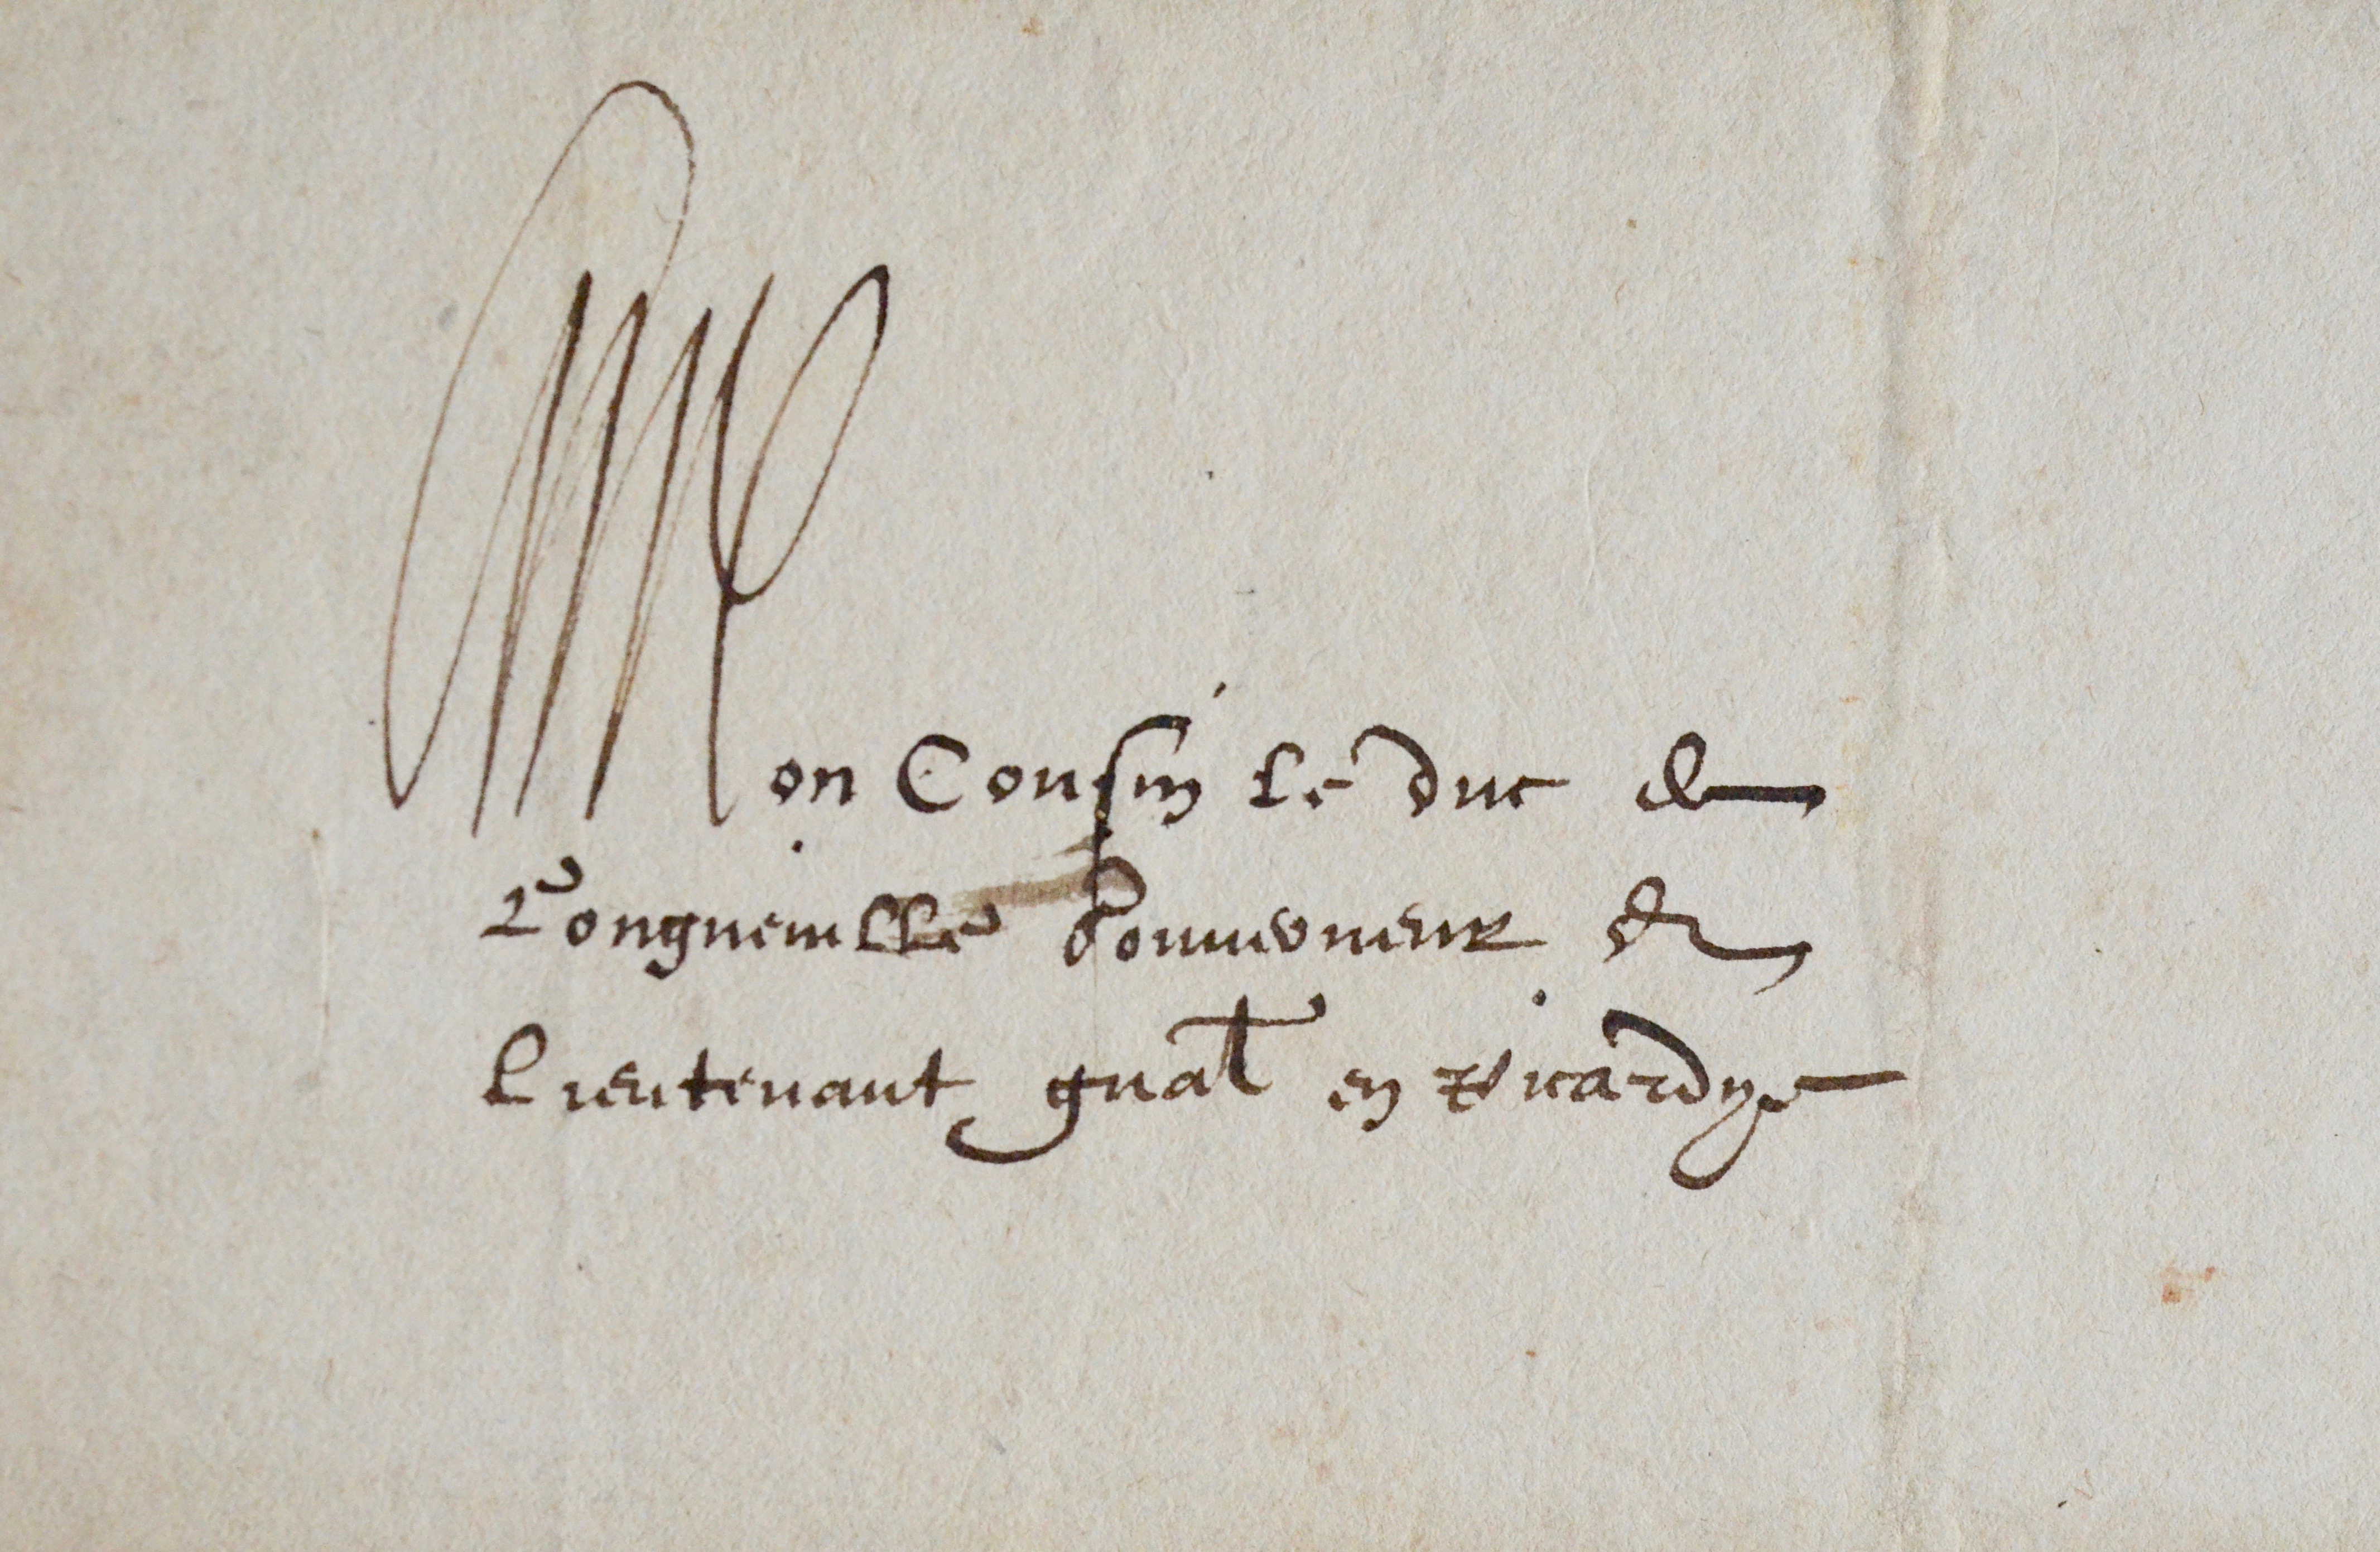 Mon Cousin le duc de
Longueuille Gouuerneur &
Lieutenant gnal en Picardye